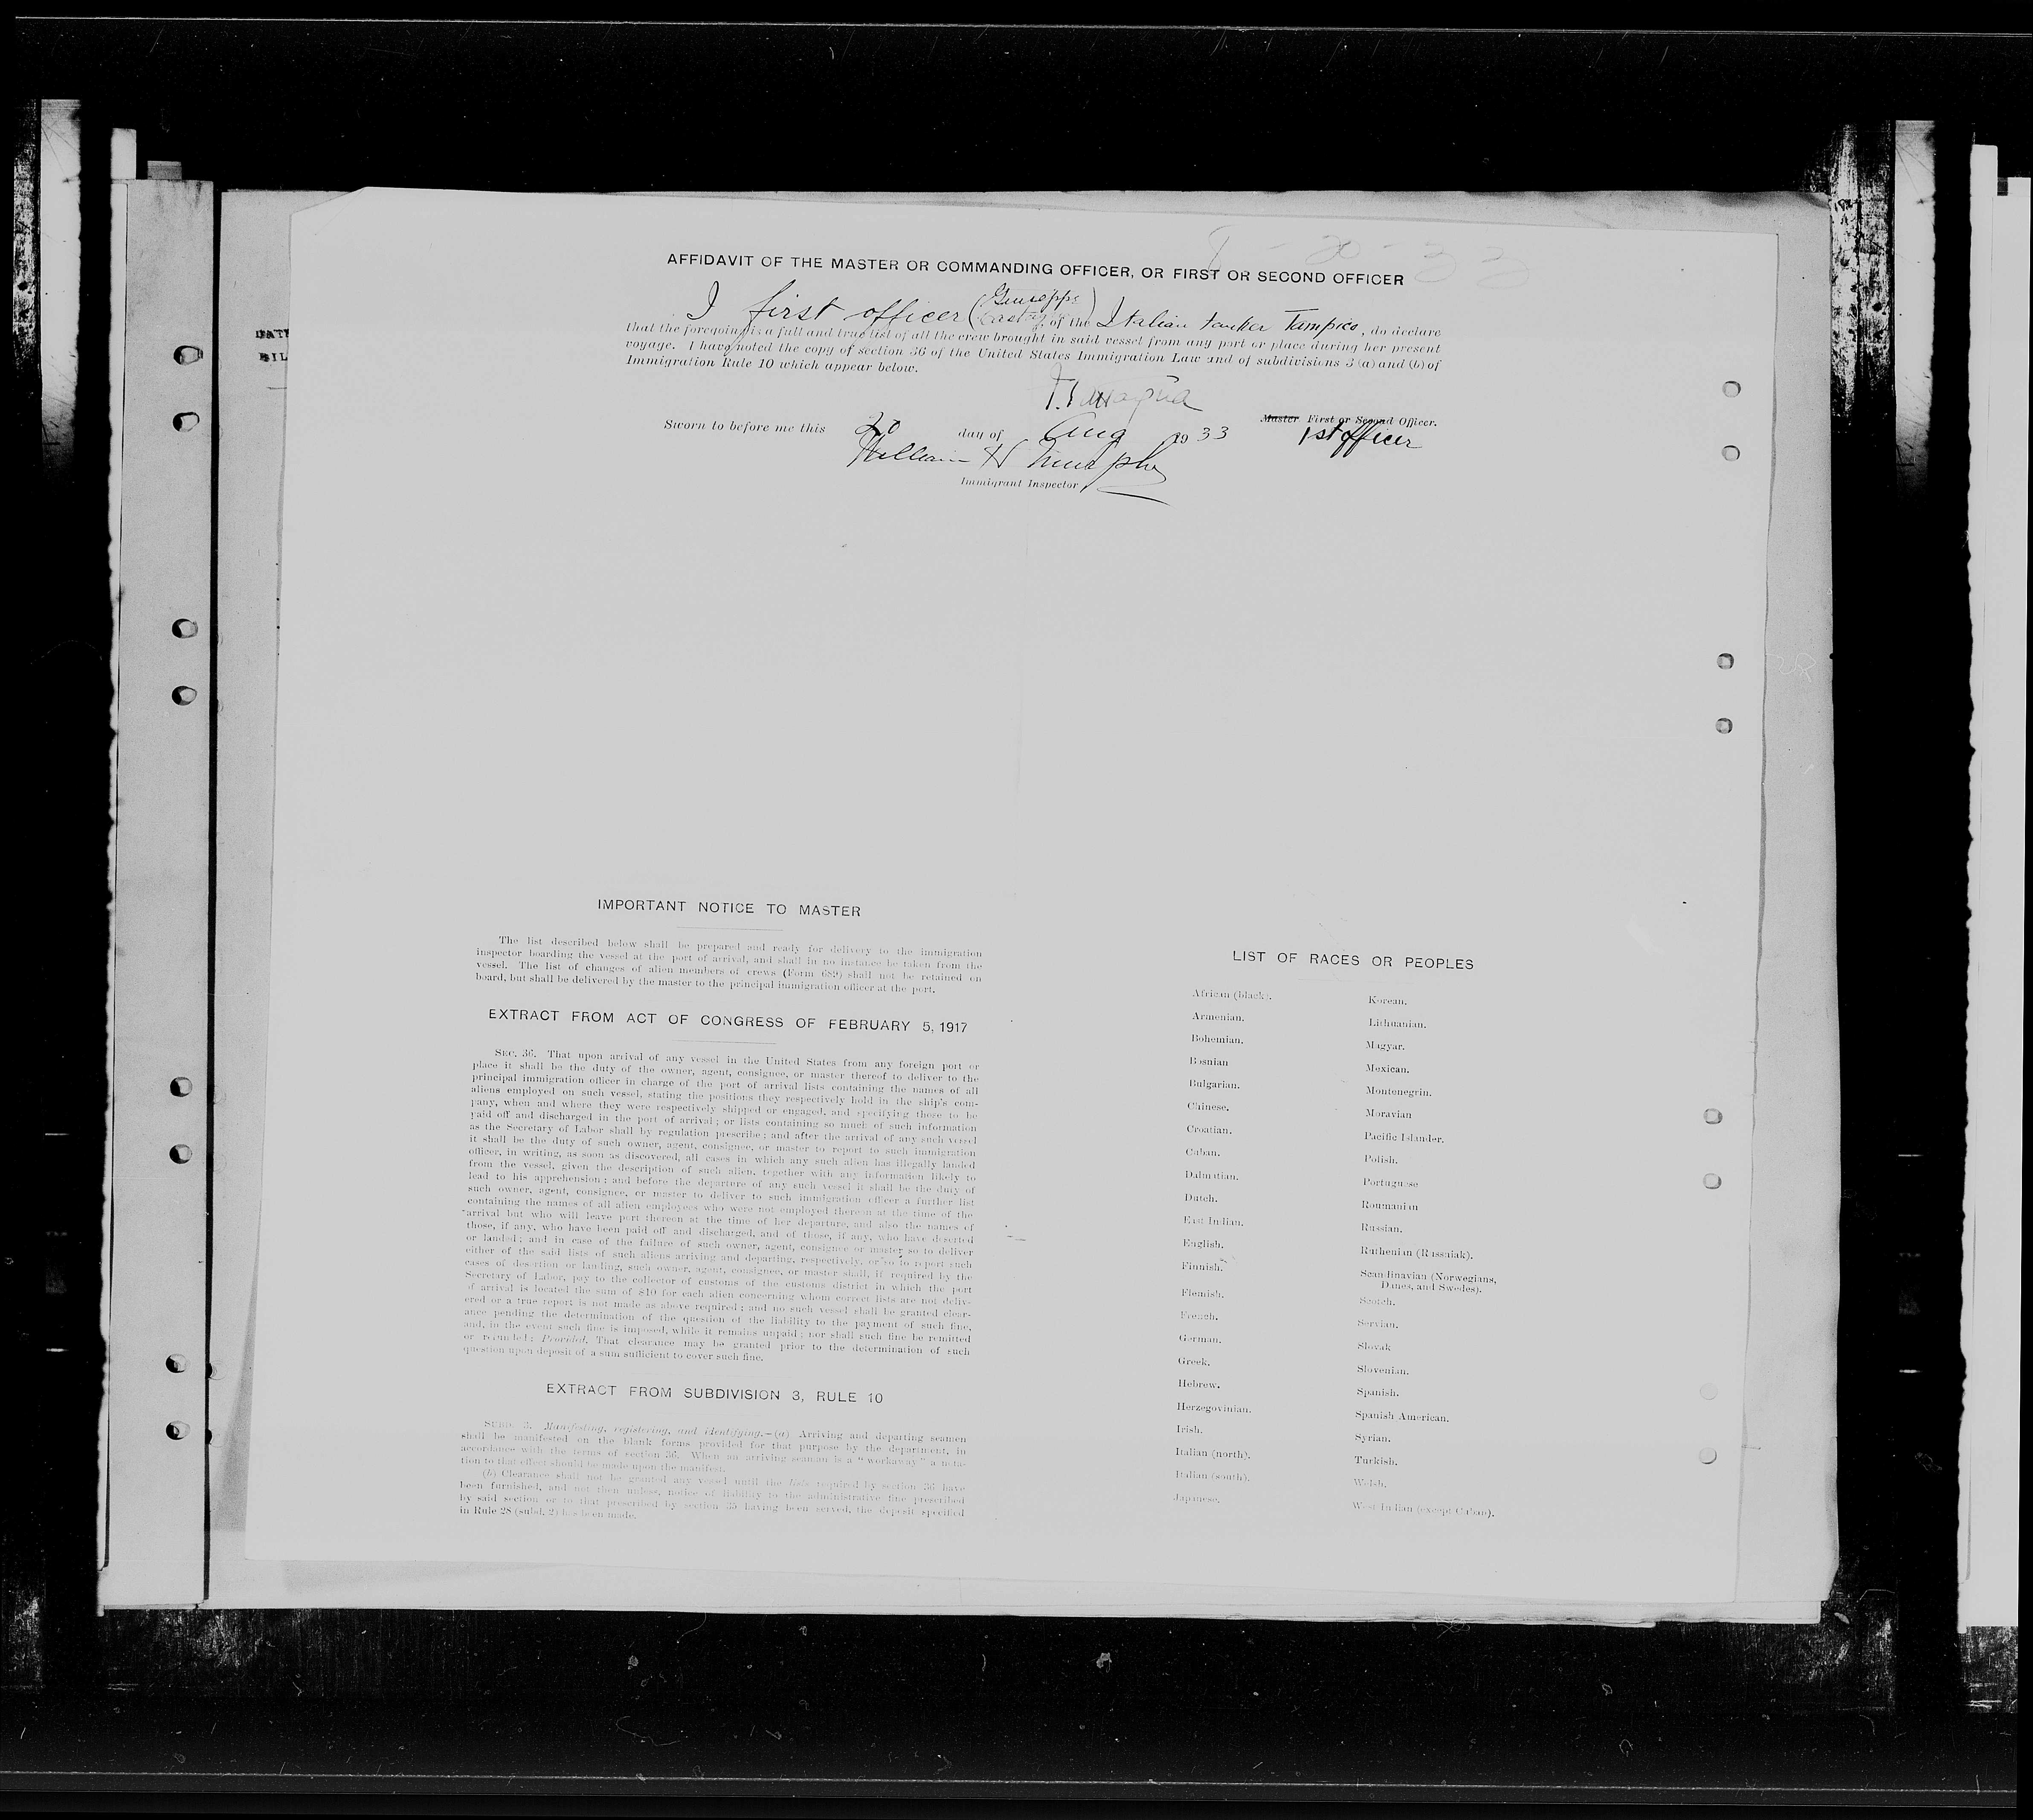 8-20-33
AFFIDAVIT OF THE MASTER OR COMMANDING OFFICER, OR FIRST OR SECOND OFFICER
Giuseppe
I first officer ( ) of the Italian tanker Tampico, do declare
that the foregoing is a full and true list of all the crew brought in said vessel from any port or place during her present
voyage. I have noted the copy of section 36 of the United States Immigration Law and of subdivisions 3 (a) and (b) of
Immigration Rule 10 which appear below.
Master First or Second Officer.
Sworn to before me this 20 day of Aug 1933 1st officer
William H Murphy
Immigrant Inspector
DAT
BIL
IMPORTANT NOTICE TO MASTER
The list described below shall be prepared and ready for delivery to the immigration
inspector boarding the vessel at the port of arrival, and shall in no instance be taken from the
vessel. The list of changes of alien members of crews (Form 689) shall not be retained on
board, but shall be delivered by the master to the principal immigration officer at the port.
EXTRACT FROM ACT OF CONGRESS OF FEBRUARY 5, 1917
SEC. 36. That upon arrival of any vessel in the United States from any foreign port or
place it shall be the duty of the owner, agent, consignee, or master thereof to deliver to the
principal immigration officer in charge of the port of arrival lists containing the names of all
aliens employed on such vessel, stating the positions they respectively hold in the ship's com-
pany, when and where they were respectively shipped or engaged, and specifying those to be
paid off and discharged in the port of arrival; or lists containing so much of such information
as the Secretary of Labor shall by regulation prescribe; and after the arrival of any such vessel
it shall be the duty of such owner, agent, consignee, or master to report to such immigration
officer, in writing, as soon as discovered, all cases in which any such alien has illegally landed
from the vessel, given the description of such alien, together with any information likely to
lead to his apprehension; and before the departure of any such vessel it shall be the duty of
such owner, agent, consignee, or master to deliver to such immigration officer a further list
containing the names of all alien employees who were not employed thereon at the time of the
arrival but who will leave port thereon at the time of her departure, and also the names of
those, if any, who have been paid off and discharged, and of those, if any, who have deserted
or landed; and in case of the failure of such owner, agent, consignee or master so to deliver
either of the said lists of such aliens arriving and departing, respectively, or so to report such
cases of desertion or landing, such owner, agent, consignee, or master shall, if required by the
Secretary of Labor, pay to the collector of customs of the customs district in which the port
of arrival is located the sum of $10 for each alien concerning whom correct lists are not deliv-
ered or a true report is not made as above required; and no such vessel shall be granted clear-
ance pending the determination of the question of the liability to the payment of such fine,
and, in the event such fine is imposed, while it remains unpaid; nor shall such fine be remitted
or refunded: Provided, That clearance may be granted prior to the determination of such
question upon deposit of a sum sufficient to cover such fine.
EXTRACT FROM SUBDIVISION 3, RULE 10
SUBD. 3. Manifesting, registering, and identifying.—(a) Arriving and departing seamen
shall be manifested on the blank forms provided for that purpose by the department, in
accordance with the terms of section 36. When an arriving seaman is a "workaway" a nota-
tion to that effect should be made upon the manifest.
(b) Clearance shall not be granted any vessel until the lists required by section 36 have
been furnished, and not then unless, notice of liability to the administrative fine prescribed
by said section or to that prescribed by section 35 having been served, the deposit specified
in Rule 28 (subd. 2) has been made.
LIST OF RACES OR PEOPLES
African (black).
Armenian.
Bohemian.
Bosnian
Bulgarian.
Chinese.
Croatian.
Cuban.
Dalmatian.
Dutch.
East Indian.
English.
Finnish.
Flemish.
French.
German.
Greek.
Hebrew.
Herzegovinian.
Irish.
Italian (north).
Italian (south).
Japanese.
Korean.
Lithuanian.
Magyar.
Mexican.
Montenegrin.
Moravian
Pacific Islander.
Polish.
Portuguese
Roumanian
Russian.
Ruthenian (Russniak).
Scandinavian (Norwegians,
Danes, and Swedes).
Scotch.
Servian.
Slovak
Slovenian.
Spanish.
Spanish American.
Syrian.
Turkish.
Welsh.
West Indian (except Cuban).